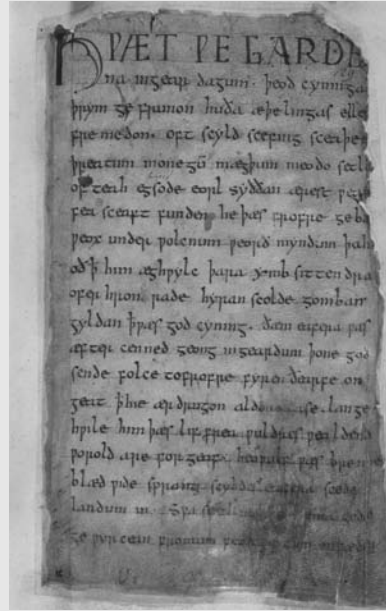 HǷÆT ǷE GARDE
na ingear dagum. þeod cyninga
þrym ge frunon huða æþelingas elle
fremedon. oft scyld scefing sceaþe
þreatum monegū mægþum meodo setl
of teah egsode eorl syððan ærest ƿear
fea sceaft funden he þæs frofre geba
ƿeox under ƿolcnum ƿeorð myndum þah
oð þ him æghƿylc þara ymb sittendra
ofer hron rade hyran scolde gomban
gyldan þ ƿæs god cyning. ðæm eafera ƿæs
æfter cenned geong ingeardum þone god
sende folce tofrofre fyren ðearfe on
geat þ hie ær drugon aldor ase. lange
hƿile him þæs lif frea ƿuldres ƿealdend
ƿorold are for geaf. beoƿulf ƿæs breme
blæd ƿide sprang scyldes eafera scede
landum in. Sƿa guma gode
ge ƿyrcean fromum feoh giftum